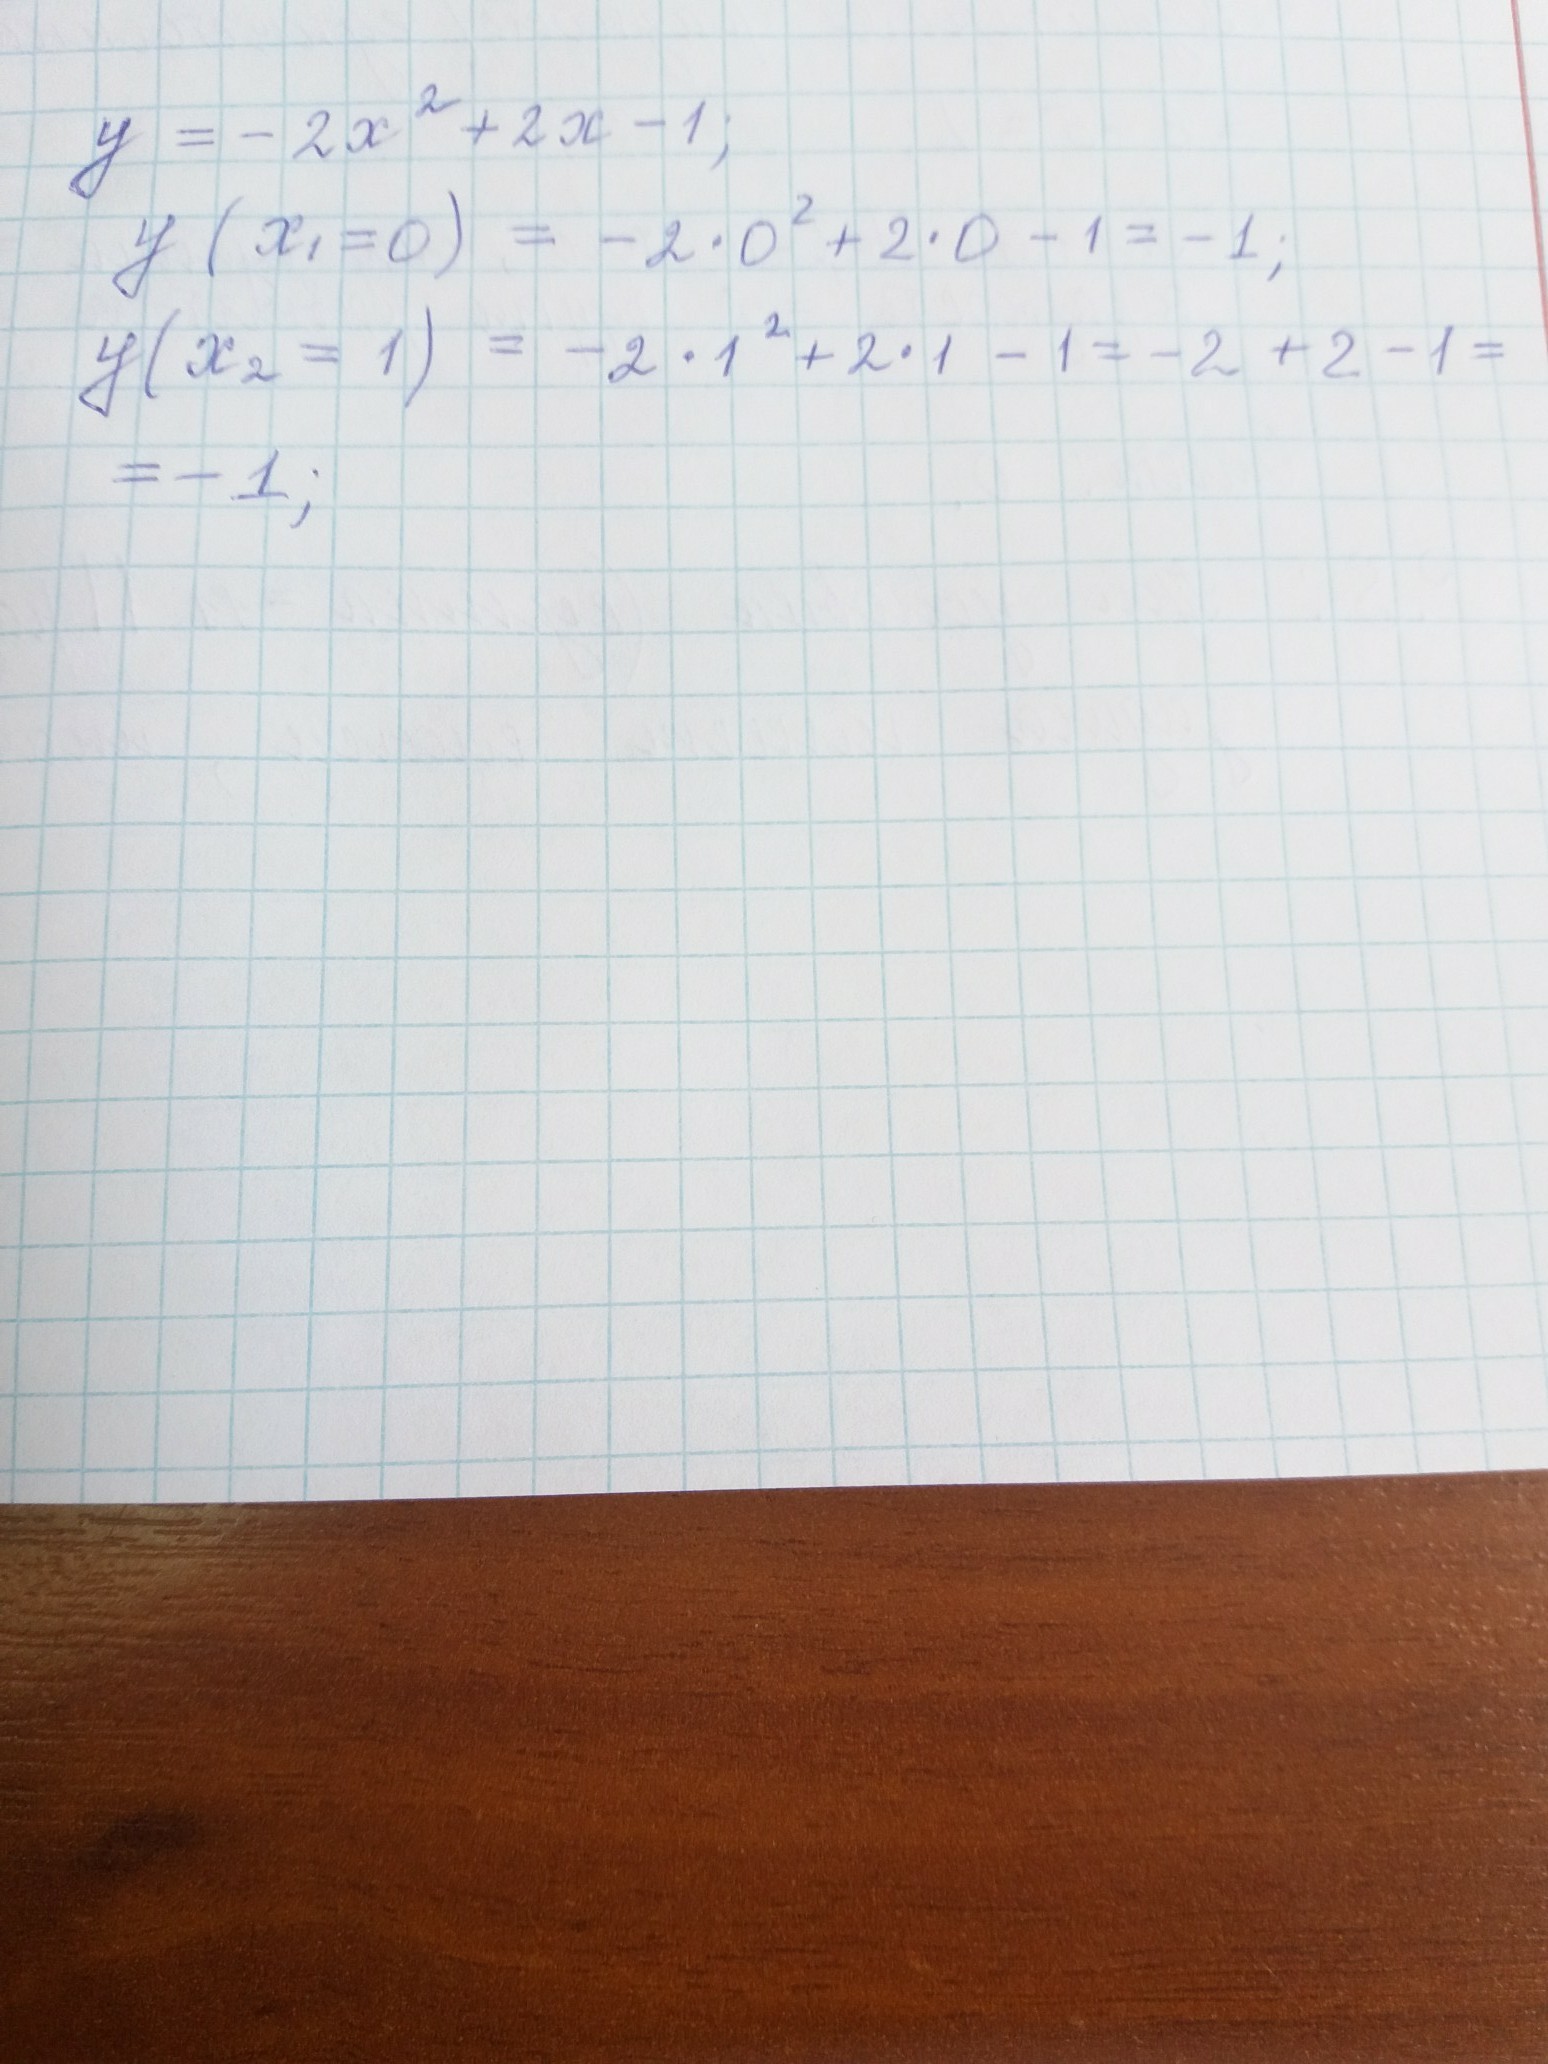 y = -2x² + 2x - 1;
y(x₁ = 0) = -2·0² + 2·0 - 1 = -1;
y(x₂ = 1) = -2·1² + 2·1 - 1 = -2 + 2 - 1 =
= -1;